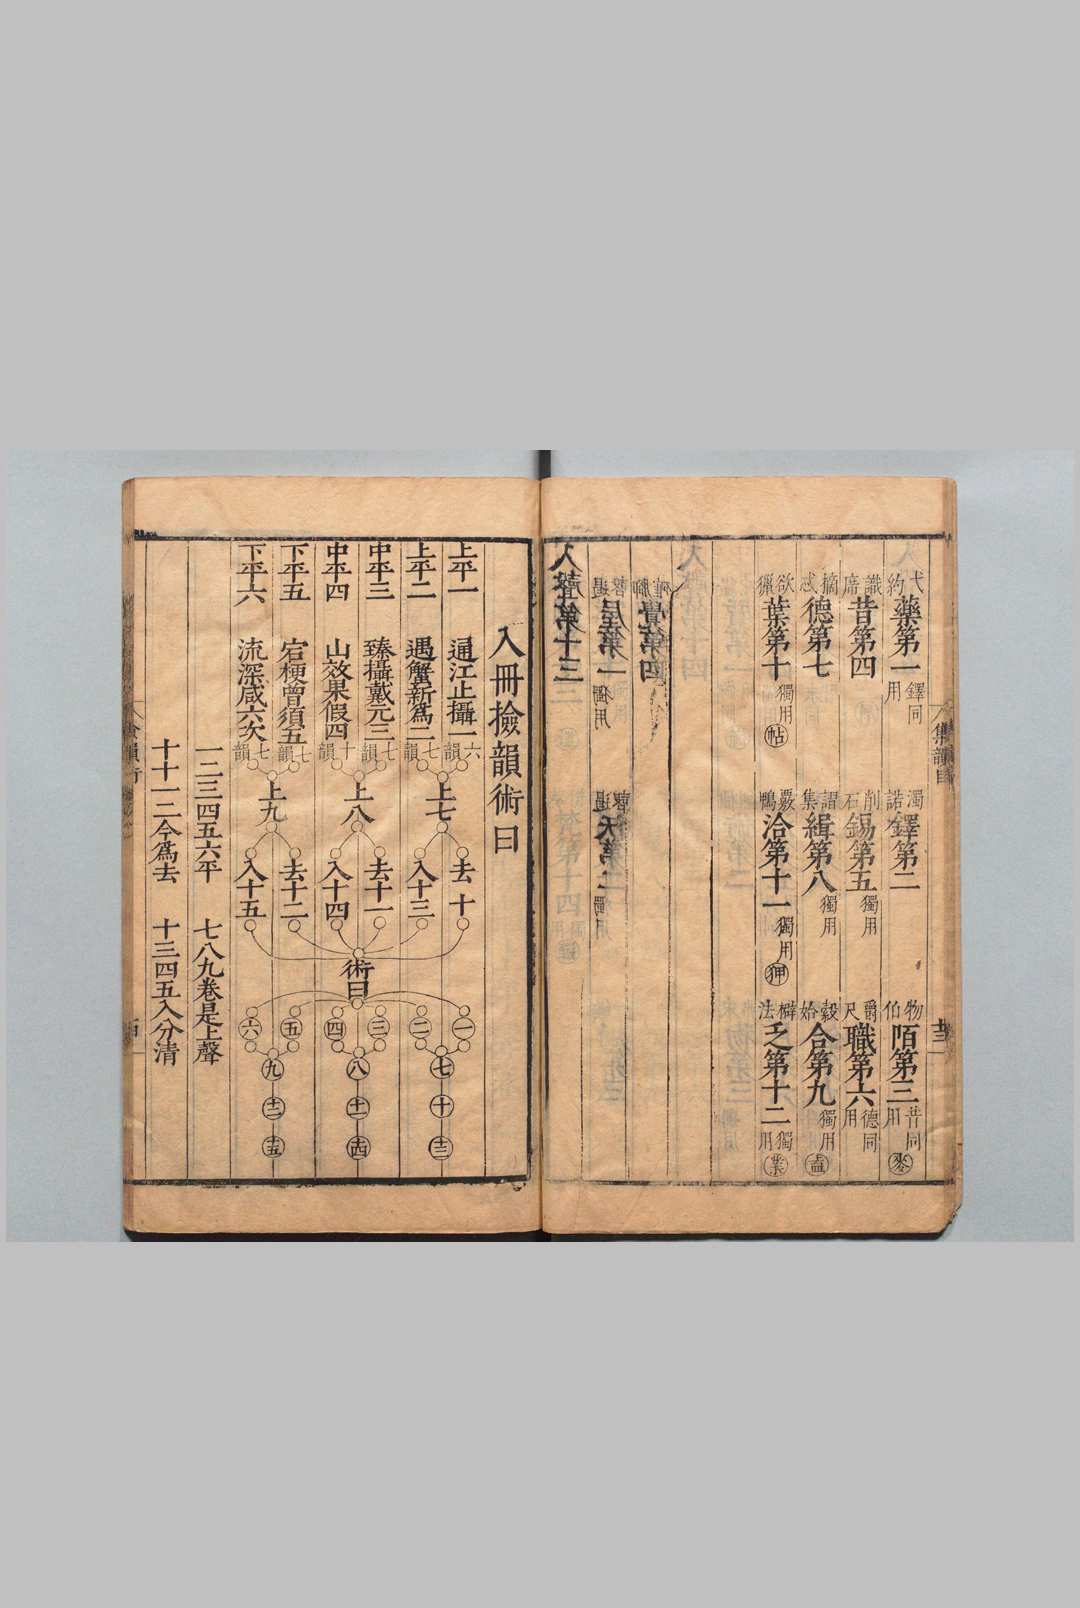 弋約藥第一鐸同用 濁諾鐸第二 物伯陌第三昔同用麥
識席昔第四 削石錫第五獨用 爵尺職第六德同用
摘惑德第七 謂集緝第八獨用 穀始合第九獨用盍
欲獵葉第十獨用帖 覈鴨洽第十一獨用狎 法乏第十二獨用業
覺第四
屋第一獨用 沃第二獨用
入聲第十三
集韻目
十三
入冊撿韻術曰
上平一 通江止攝一六韻
上平二 遇蟹新爲二七韻
中平三 臻攝戴元三七韻
中平四 山效果假四十韻
下平五 宕梗曾須五七韻
下平六 流深咸六次七韻
上七 上八 上九
去十 入十三 去十一 入十四 去十二 入十五
術曰
一 二 三 四 五 六
七 八 九
十 十一 十二
十三 十四 十五
一二三四五六平 七八九卷是上聲
十十一二今爲去 十三四五入分清